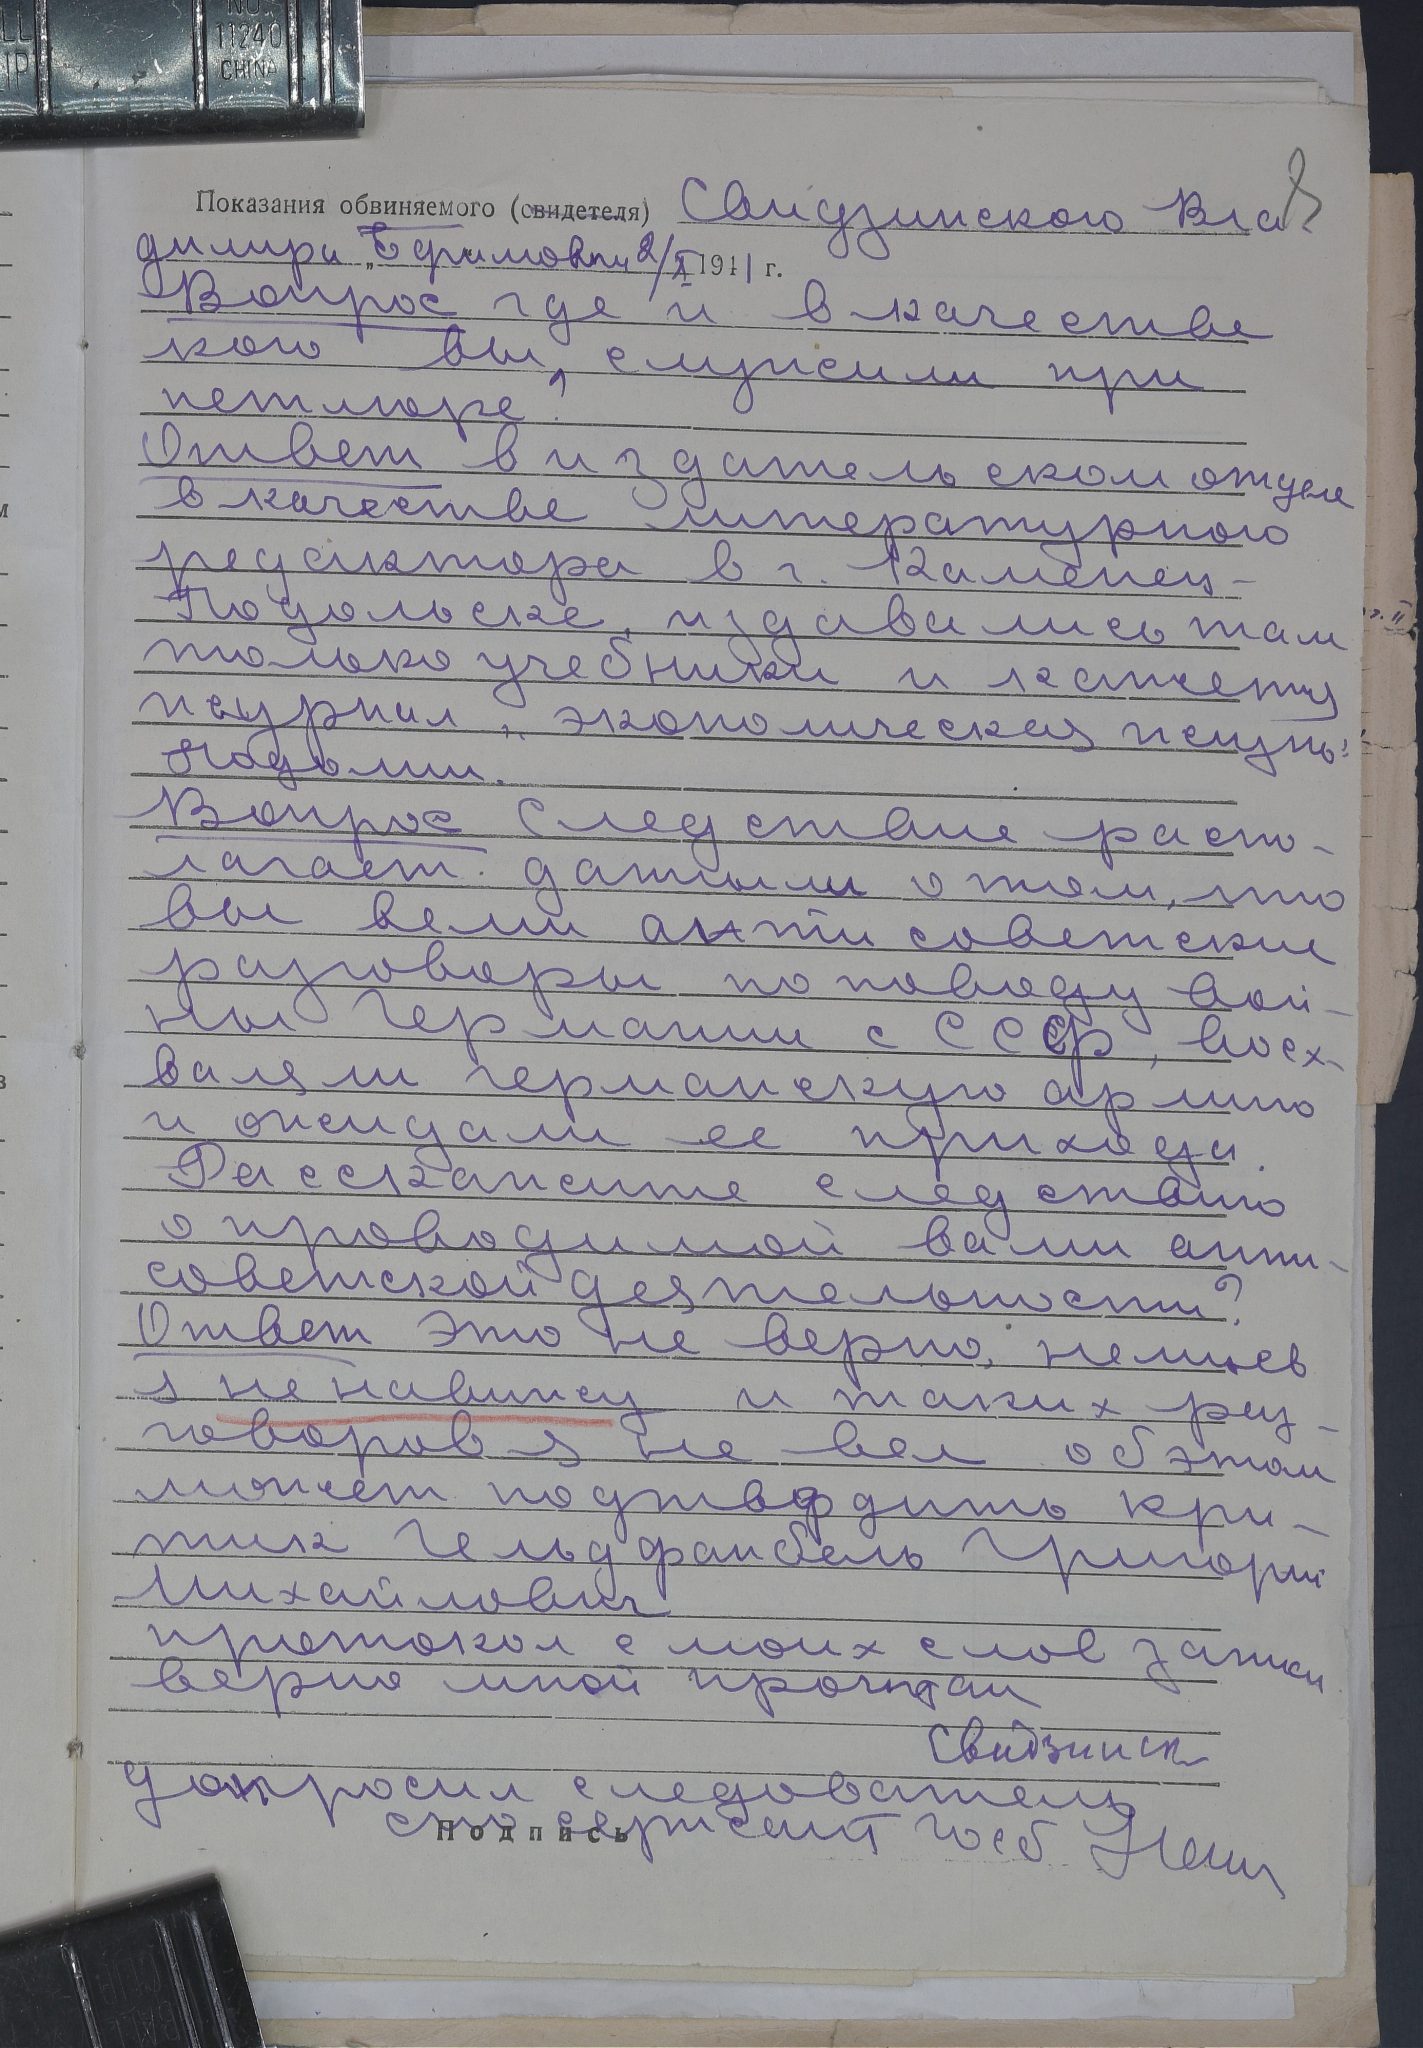 NO. 11240
CHINA
8
Показания обвиняемого (свидетеля) Свидзинского Вла
димира Ефимовича 2/X 1941 г.
Вопрос где и в качестве
кого вы служили при
петлюре?
Ответ в издательском отделе
в качестве литературного
редактора в г. Каменец-
Подольске, издавались там
только учебники и кажется
журнал „экономическая жизнь"
Подолии.
Вопрос Следствие распо-
лагает данными о том, что
вы вели антисоветские
разговоры по поводу вой-
ны Германии с СССР, восх-
валяли германскую армию
и ожидали ее прихода.
Расскажите следствию
о проводимой вами анти-
советской деятельности?
Ответ Это не верно, немцев
я ненавижу и таких раз-
говоров я не вел об этом
может подтвердить кри-
тик Гельдфанбейль Григорий
Михайлович
протокол с моих слов записан
верно мной прочитан
Свидзинск
допросил следователь
сержант госб
Подпись